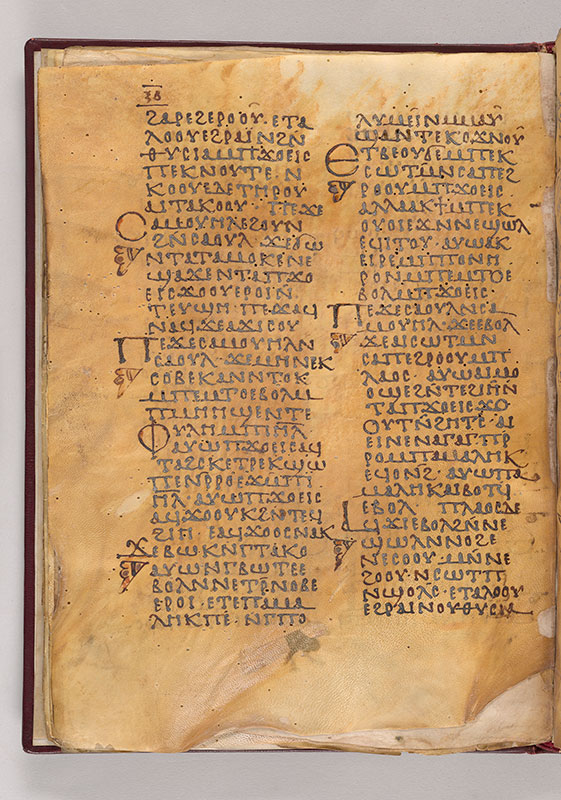 ϩⲁⲣⲉϩⲉⲣⲟⲟⲩ· ⲉⲧⲁ
ⲗⲟⲟⲩⲉϩⲣⲁⲓⲛϩⲛ
ⲑⲩⲥⲓⲁⲙⲡϫⲟⲉⲓⲥ
ⲡⲉⲕⲛⲟⲩⲧⲉ· ⲛ
ⲕⲟⲟⲩⲉⲇⲉⲧⲏⲣⲟⲩ
ⲁⲓⲧⲁⲕⲟⲟⲩ· ⲡⲉϫⲉ
ⲥⲁⲙⲟⲩⲏⲗⲉϩⲟⲩⲛ
ϩⲛⲥⲁⲟⲩⲗ· ϫⲉϭⲱ
ⲛⲧⲁⲧⲁⲙⲟⲕⲉⲛⲉ
ϣⲁϫⲉⲛⲧⲁⲡϫⲟ
ⲉⲓⲥϫⲟⲟⲩⲉⲣⲟⲓⲛ
ⲧⲉⲩϣⲏ· ⲡⲉϫⲁϥ
ⲛⲁϥϫⲉⲁϫⲓⲥⲟⲩ
ⲡⲉϫⲉⲥⲁⲙⲟⲩⲏⲗⲛ
ⲥⲁⲟⲩⲗ· ϫⲉⲙⲏⲛⲉⲕ
ⲥⲟⲃⲉⲕⲁⲛⲛⲧⲟⲕ
ⲙⲡⲉⲙⲧⲟⲉⲃⲟⲗⲙ
ⲡⲙⲏⲏϣⲉⲛⲧⲉ
ⲫⲩⲗⲏⲙⲡⲓⲏⲗ
ⲁⲩⲱⲡϫⲟⲉⲓⲥⲁϥ
ⲧⲁϩⲥⲕⲉⲧⲣⲉⲕϣⲱ
ⲡⲉⲛⲣⲣⲟⲉϫⲙⲡⲓ
ⲏⲗ· ⲁⲩⲱⲡϫⲟⲉⲓⲥ
ⲁϥϫⲟⲟⲩⲕϩⲛⲧⲉϥ
ϩⲓⲏ· ⲉⲁϥϫⲟⲟⲥⲛⲁⲕ
ϫⲉⲃⲱⲕⲛⲅⲧⲁⲕⲟ
ⲁⲩⲱⲛⲅϥⲱⲧⲉⲉ
ⲃⲟⲗⲛⲛⲉⲧⲣⲛⲟⲃⲉ
ⲉⲣⲟⲓ· ⲉⲧⲉⲡⲁⲙⲁ
ⲗⲏⲕⲡⲉ· ⲛⲅⲡⲟ
ⲗⲩⲙⲉⲓⲛⲙⲙⲁⲩ
ϣⲁⲛⲧⲉⲕⲟϫⲛⲟⲩ
ⲉⲧⲃⲉⲟⲩϭⲉⲙⲡⲉⲕ
ⲥⲱⲧⲙⲛⲥⲁⲡⲉϩ
ⲣⲟⲟⲩⲙⲡϫⲟⲉⲓⲥ
ⲁⲗⲗⲁⲁⲕϯⲙⲡⲉⲕ
ⲟⲩⲟⲓⲉϫⲛⲛⲉϣⲱⲗ
ⲉϥⲓⲧⲟⲩ· ⲁⲩⲱⲁⲕ
ⲉⲓⲣⲉⲙⲡⲡⲟⲛⲏ
ⲣⲟⲛⲙⲡⲉⲙⲧⲟⲉ
ⲃⲟⲗⲙⲡϫⲟⲉⲓⲥ·
ⲡⲉϫⲉⲥⲁⲟⲩⲗⲛⲥⲁ
ⲙⲟⲩⲏⲗ· ϫⲉⲉⲃⲟⲗ
ϫⲉⲁⲓⲥⲱⲧⲙⲛ
ⲥⲁⲡⲉϩⲣⲟⲟⲩⲙⲡ
ⲗⲁⲟⲥ· ⲁⲩⲱⲁⲓⲙⲟ
ⲟϣⲉϩⲛⲧⲉϩⲓⲏⲛ
ⲧⲁⲡϫⲟⲉⲓⲥϫⲟ
ⲟⲩⲧⲛϩⲏⲧⲥ· ⲁⲓ
ⲉⲓⲛⲉⲛⲁⲅⲁⲅⲡⲣ
ⲣⲟⲙⲡⲁⲙⲁⲗⲏⲕ
ⲉϥⲟⲛϩ· ⲁⲩⲱⲡⲁ
ⲙⲁⲗⲏⲕⲁⲓⲃⲟⲧϥ
ⲉⲃⲟⲗ· ⲡⲗⲁⲟⲥⲇⲉ
ⲁϥϫⲓⲉⲃⲟⲗϩⲛⲛⲉ
ϣⲱⲗⲛⲛⲟϩⲉ
ⲛⲉⲥⲟⲟⲩ· ⲙⲛⲛⲉ
ϩⲟⲟⲩ· ⲛⲥⲱⲧⲡ
ⲛϣⲱⲗ· ⲉⲧⲁⲗⲟⲟⲩ
ⲉϩⲣⲁⲓⲛⲟⲩⲑⲩⲥⲓⲁ